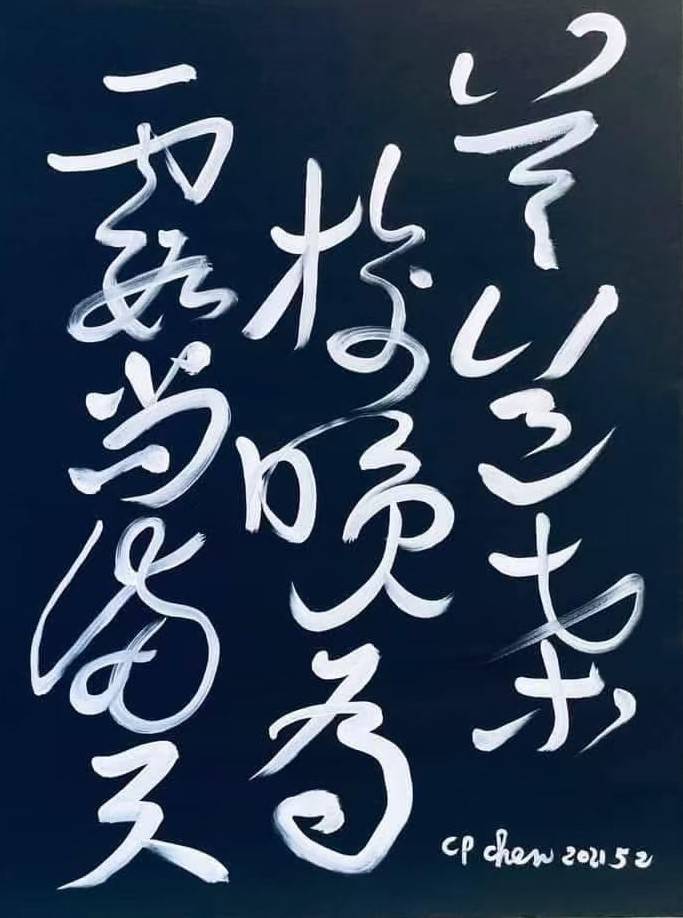 莫道桑
榆晚為
霞尚滿天
CP chen 2021 5 2